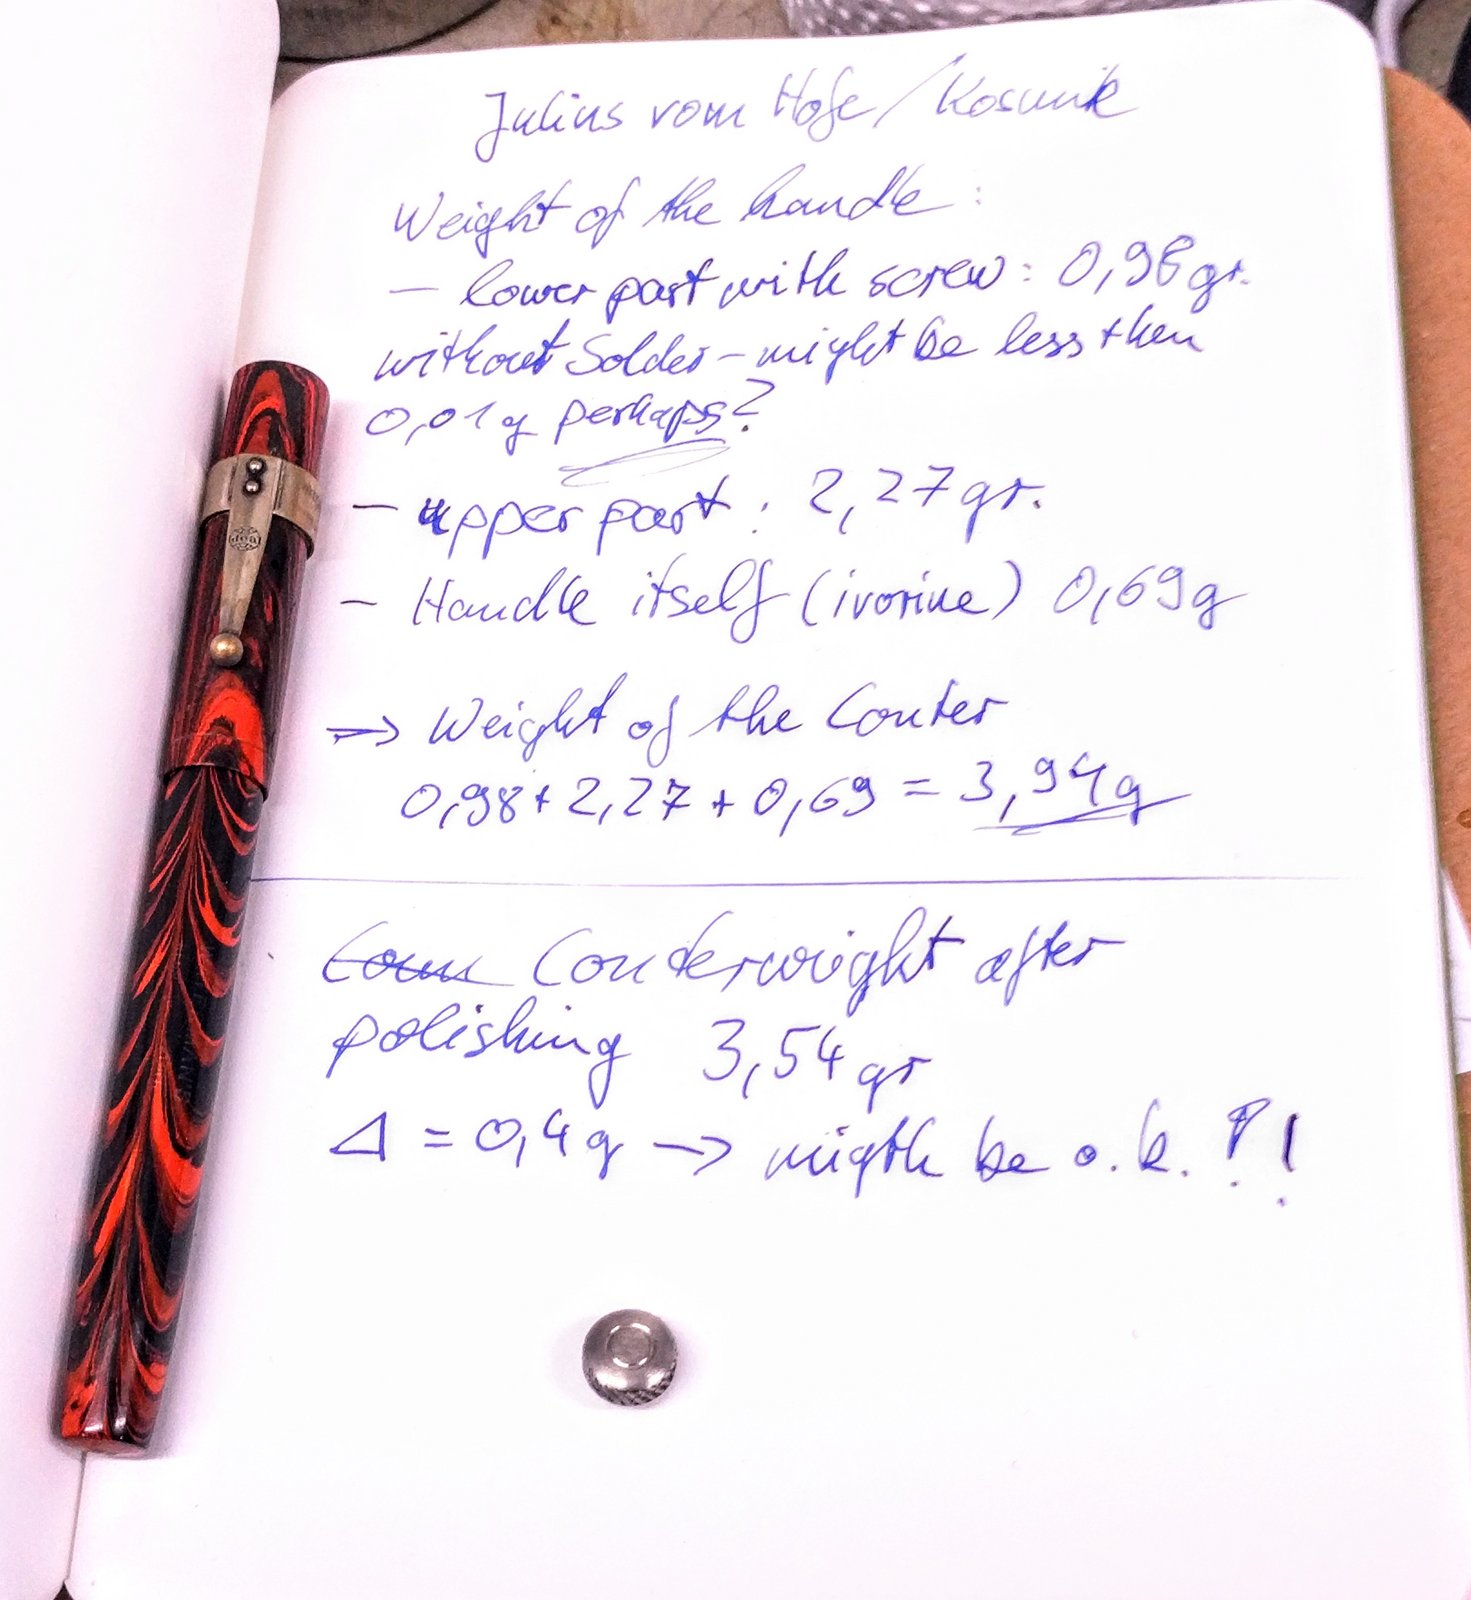 Julius vom Hofe / Kosmik
Weight of the handle :
— lower part with screw : 0,98 gr.
without Solder – might be less then
0,01 g perhaps?
— upper part : 2,27 gr.
— Handle itself (ivorine) 0,69 g
→ Weight of the Conter
0,98 + 2,27 + 0,69 = 3,94 g
Conterweight after
polishing 3,54 gr
Δ = 0,4 g → migth be o.k. ?!